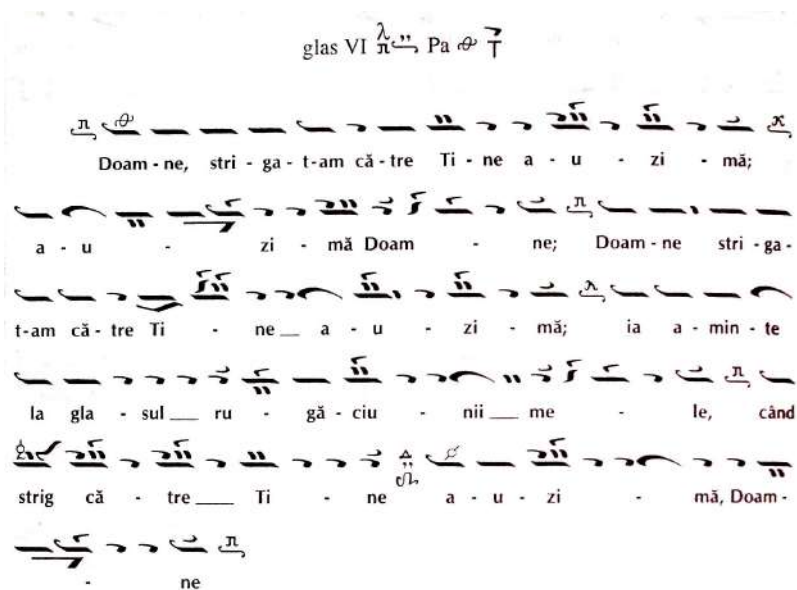 glas VI λ π Pa
Doam - ne, stri - ga - t-am că - tre Ti - ne a - u - zi - mă;
a - u - zi - mă Doam - ne; Doam - ne stri - ga -
t-am că - tre Ti - ne __ a - u - zi - mă; ia a - min - te
la gla - sul ___ ru - gă - ciu - nii ___ me - le, când
strig că - tre ____ Ti - ne a - u - zi - mă, Doam -
- ne